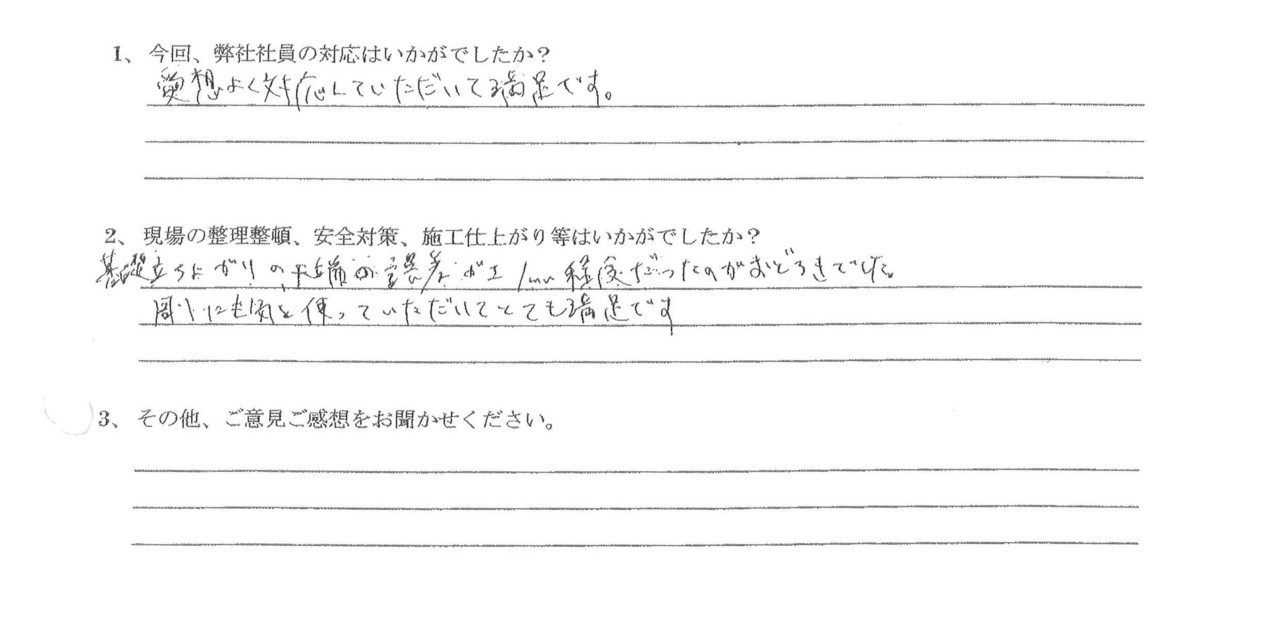 1、今回、弊社社員の対応はいかがでしたか？
愛想よく対応していただいて満足です。
2、現場の整理整頓、安全対策、施工仕上がり等はいかがでしたか？
基礎立ち上がりの天端の誤差が±1mm程度だったのがおどろきでした。
周りにも気を使っていただいてとても満足です
3、その他、ご意見ご感想をお聞かせください。